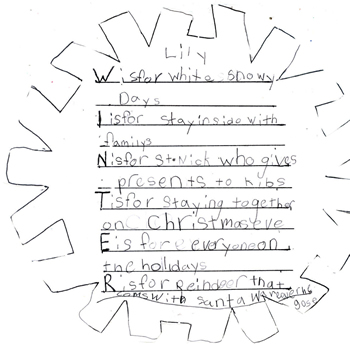 Lily
W is for white snowy
Days
I is for stay inside with
familys
N is for St. Nick who gives
presents to kibs
T is for staying together
one Christmas eve
E is for everyone on
the hollidays
R is for Reindeer that
coms with santa
gose